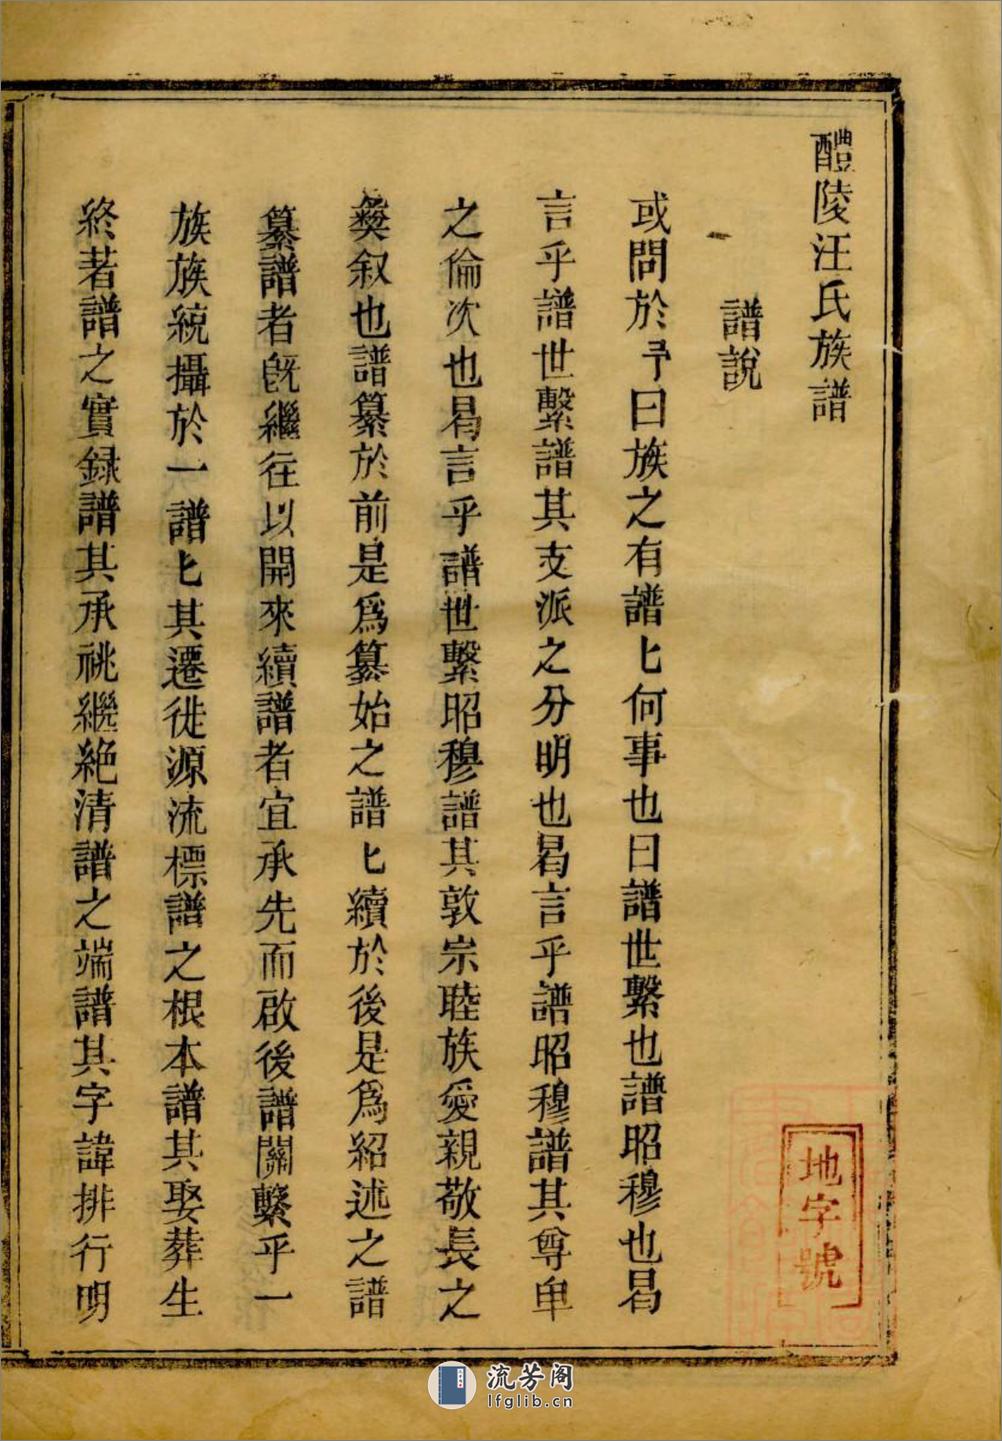 醴陵汪氏族譜
譜說
或問於予曰族之有譜匕何事也曰譜世繫也譜昭穆也曷
言乎譜世繫譜其支派之分明也曷言乎譜昭穆譜其尊卑
之倫次也曷言乎譜世繫昭穆譜其敦宗睦族愛親敬長之
彜叙也譜纂於前是爲纂始之譜匕續於後是爲紹述之譜
纂譜者旣繼往以開來續譜者宜承先而啟後譜關繫乎一
族族統攝於一譜匕其遷徙源流標譜之根本譜其娶葬生
終著譜之實録譜其承祧繼絶清譜之端譜其字諱排行明
地字號
流芳阁
lfglib.cn